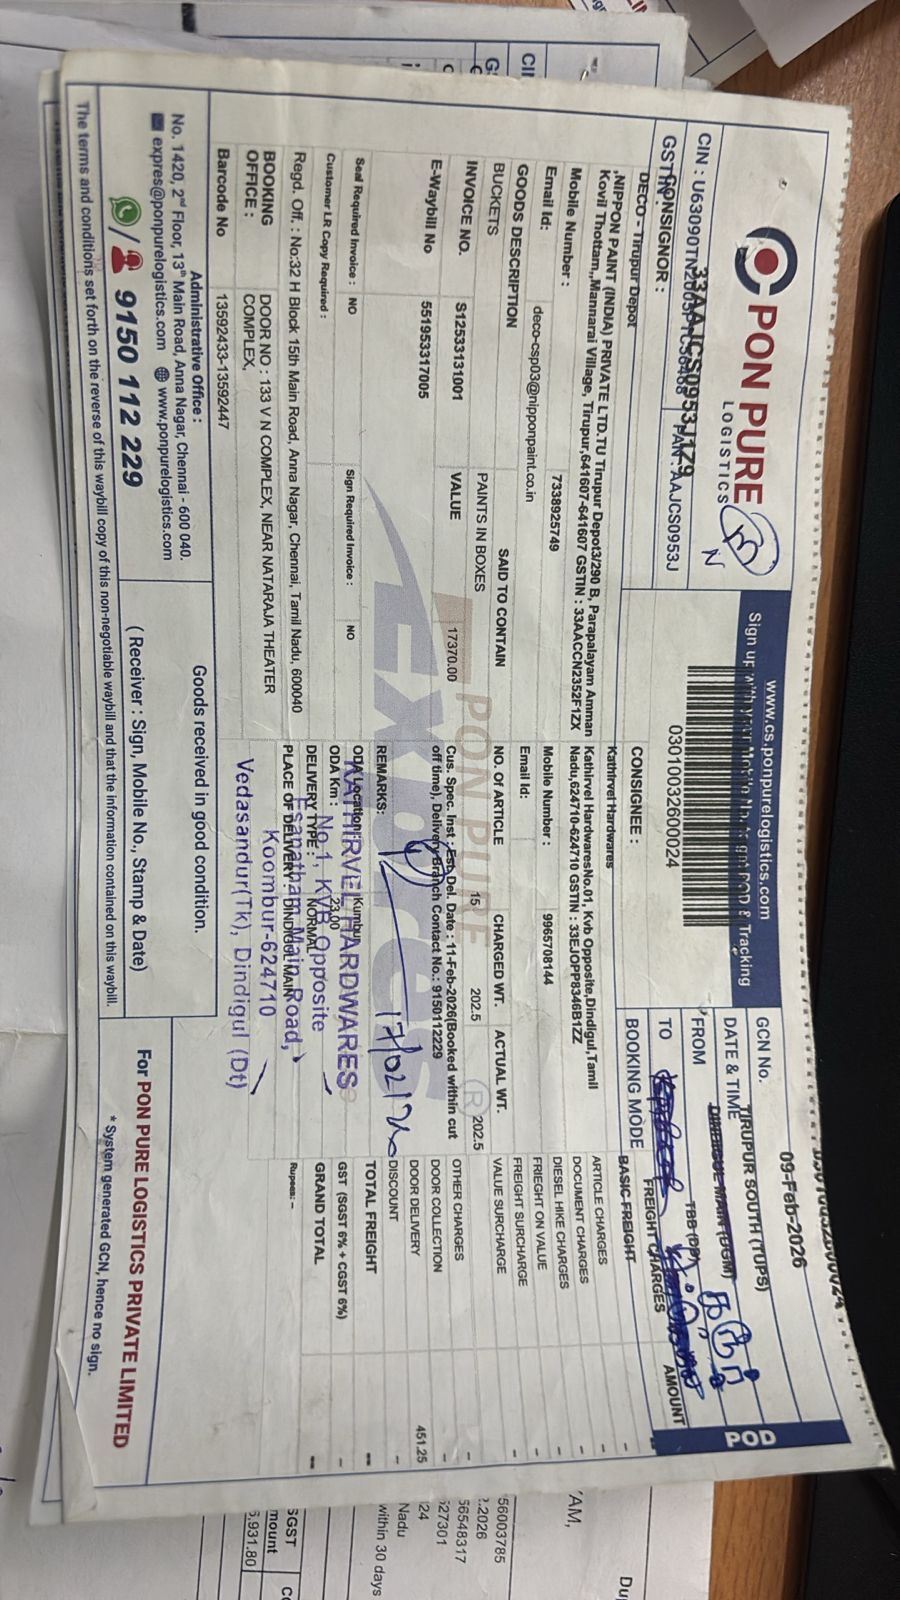 PON PURE
LOGISTICS
CIN : U63090TN2005PTC58468
PAN : AAJCS0953J
GSTIN :
33AAJCS0953J1Z9
www.cs.ponpurelogistics.com
Sign up with your Mobile No. to get POD & Tracking
0301003260024
GCN No.
DATE & TIME
09-Feb-2026
FROM
TIRUPUR SOUTH (TUPS)
TO
DINDIGUL MAIN (DGM)
BOOKING MODE
TBB (DP)
POD
CONSIGNOR :
DECO - Tirupur Depot
,NIPPON PAINT (INDIA) PRIVATE LTD.TU Tirupur Depot3/290 B, Parapalayam Amman
Kovil Thottam,,Mannarai Village, Tirupur,641607-641607 GSTIN : 33AACCN2352F1ZX
Mobile Number :
7338925749
Email Id:
deco-csp03@nipponpaint.co.in
CONSIGNEE :
Kathirvel Hardwares
Kathirvel HardwaresNo.01, Kvb Opposite,Dindigul,Tamil
Nadu,624710-624710 GSTIN : 33EJOPP8346B1ZZ
Mobile Number :
9965708144
Email Id:
GOODS DESCRIPTION
SAID TO CONTAIN
BUCKETS
PAINTS IN BOXES
NO. Of ARTICLE
15
CHARGED WT.
202.5
ACTUAL WT.
202.5
INVOICE NO.
S12533131001
VALUE
17370.00
E-Waybill No
551953317005
Cus. Spec. Inst : Est. Del. Date : 11-Feb-2026(Booked within cut
off time), Delivery Branch Contact No.: 9150112229
REMARKS:
17/02/26
Seal Required Invoice :
NO
Sign Required Invoice :
NO
Customer LR Copy Required :
ODA Location :
Kumbur
ODA Km :
23.00
DELIVERY TYPE :
NORMAL
PLACE OF DELIVERY : DINDIGUL MAIN
KATHIRVEL HARDWARES
No.1, KVB Opposite
Main Road,
Koombur-624710
Vedasandur(Tk), Dindigul (Dt)
Regd. Off. : No:32 H Block 15th Main Road, Anna Nagar, Chennai, Tamil Nadu, 600040
BOOKING
OFFICE :
DOOR NO : 133 V N COMPLEX, NEAR NATARAJA THEATER
COMPLEX,
Barcode No
13592433-13592447
FREIGHT CHARGES
AMOUNT
BASIC FREIGHT
ARTICLE CHARGES
DOCUMENT CHARGES
DIESEL HIKE CHARGES
FRIEGHT ON VALUE
FREIGHT SURCHARGE
VALUE SURCHARGE
OTHER CHARGES
DOOR COLLECTION
DOOR DELIVERY
451.25
DISCOUNT
TOTAL FREIGHT
GST (SGST 6% + CGST 6%)
GRAND TOTAL
Rupees: -
PON PURE
EXPRES
Administrative Office :
No. 1420, 2nd Floor, 13th Main Road, Anna Nagar, Chennai - 600 040.
expres@ponpurelogistics.com www.ponpurelogistics.com
9150 112 229
Goods received in good condition.
( Receiver : Sign, Mobile No., Stamp & Date)
For PON PURE LOGISTICS PRIVATE LIMITED
* System generated GCN, hence no sign.
The terms and conditions set forth on the reverse of this waybill copy of this non-negotiable waybill and that the information contained on this waybill.
56003785
2.2026
56548317
527301
24
Nadu
within 30 days
SGST
mount
6,931.80